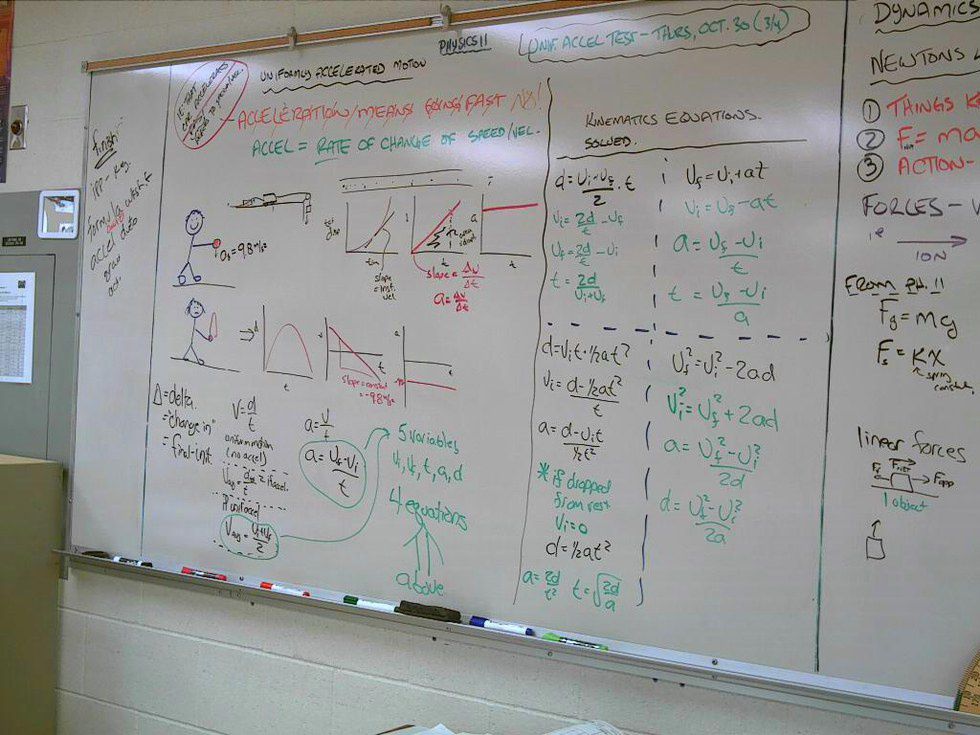 PHYSICS 11
UNIF. ACCEL TEST - THURS, OCT. 30 (3/4)
UNIFORMLY ACCELERATED MOTION
ACCELERATION MEANS GOING FAST NO!
ACCEL = RATE OF CHANGE OF SPEED/VEL.
finish:
IPP - Kg.
formula wksht
accel data
a₀ = 9.8 m/s²
d
t
slope
= inst.
vel
t
slope = Δv/Δt
a = Δv/Δt
a
t
⇒
t
t
slope = constant
= -9.8 m/s²
a
Δ = delta.
= "change in"
= final - init
V = d/t
uniform motion
(no accel)
if unif accel
Vavg = (Ui + Uf)/2
a = V/t
a = (Uf - Ui)/t
5 variables
Ui, Uf, t, a, d
4 equations
above
KINEMATICS EQUATIONS.
SOLVED.
d = (Ui + Uf)/2 · t
Ui = 2d/t - Uf
Uf = 2d/t - Ui
t = 2d/(Ui + Uf)
Uf = Ui + at
Ui = Uf - at
a = (Uf - Ui)/t
t = (Uf - Ui)/a
d = Uit + ½at²
Ui = (d - ½at²)/t
a = (d - Uit)/½t²
* if dropped
from rest
Ui = 0
d = ½at²
a = 2d/t² t = √(2d/a)
Uf² = Ui² - 2ad
Ui² = Uf² + 2ad
a = (Uf² - Ui²)/2d
d = (Uf² - Ui²)/2a
DYNAMICS
NEWTONS
① THINGS
② Fnet = ma
③ ACTION -
FORCES -
10N
FROM PH. 11
Fg = mg
Fs = Kx
spring
constant
linear forces
Fapp
1 object